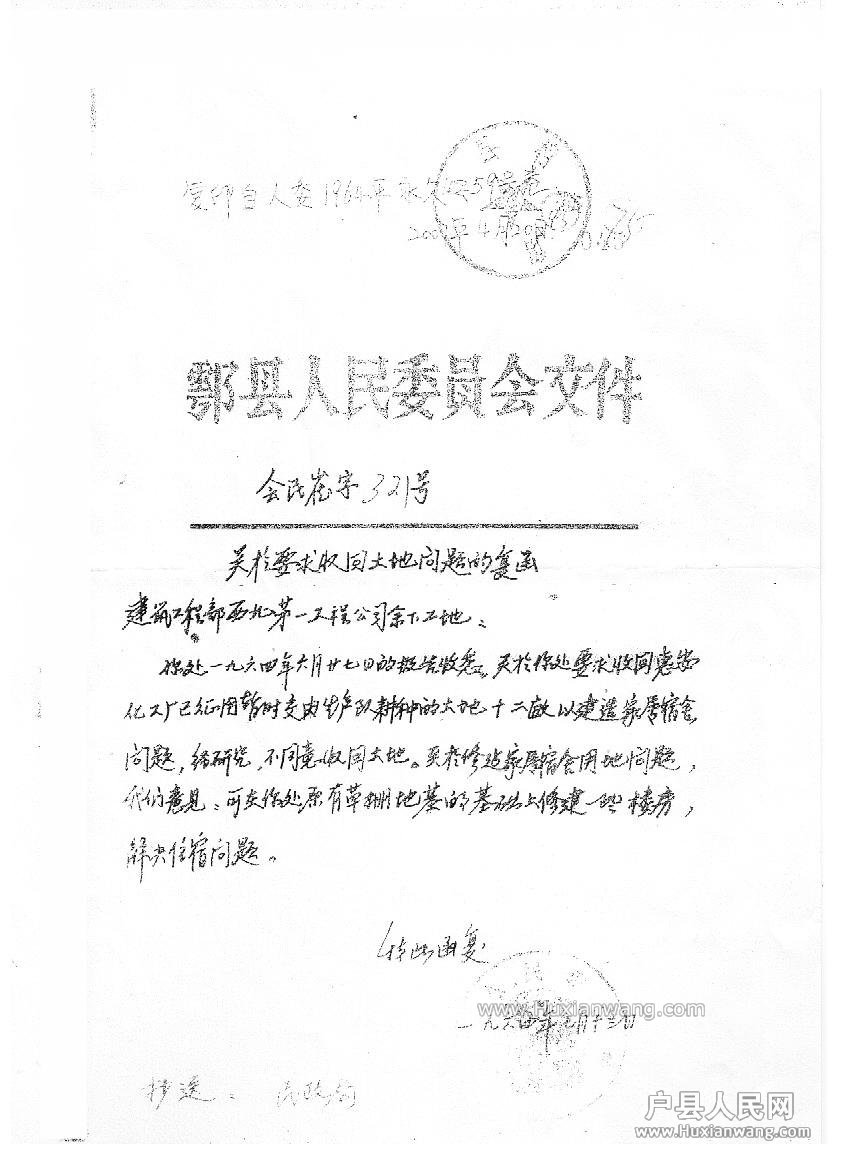 复印自人委1964年永久
2007年4月20日
鄠县人民委员会文件
会民崔字321号
关於要求收回土地问题的复函
建筑工程部西北第一工程公司余下工地：
你处一九六四年六月廿七日的报告收悉。关於你处要求收回惠安
化工厂已征用暂时交由生产队耕种的土地十二亩以建造家属宿舍
问题，经研究，不同意收回土地。关於修造家属宿舍用地问题，
我们意见：可在你处原有草棚地基的基础上修建一些楼房，
解决住宿问题。
特此函复
www.Huxianwang.com
一九六四年七月十三日
抄送：民政局
户县人民网
www.Huxianwang.com